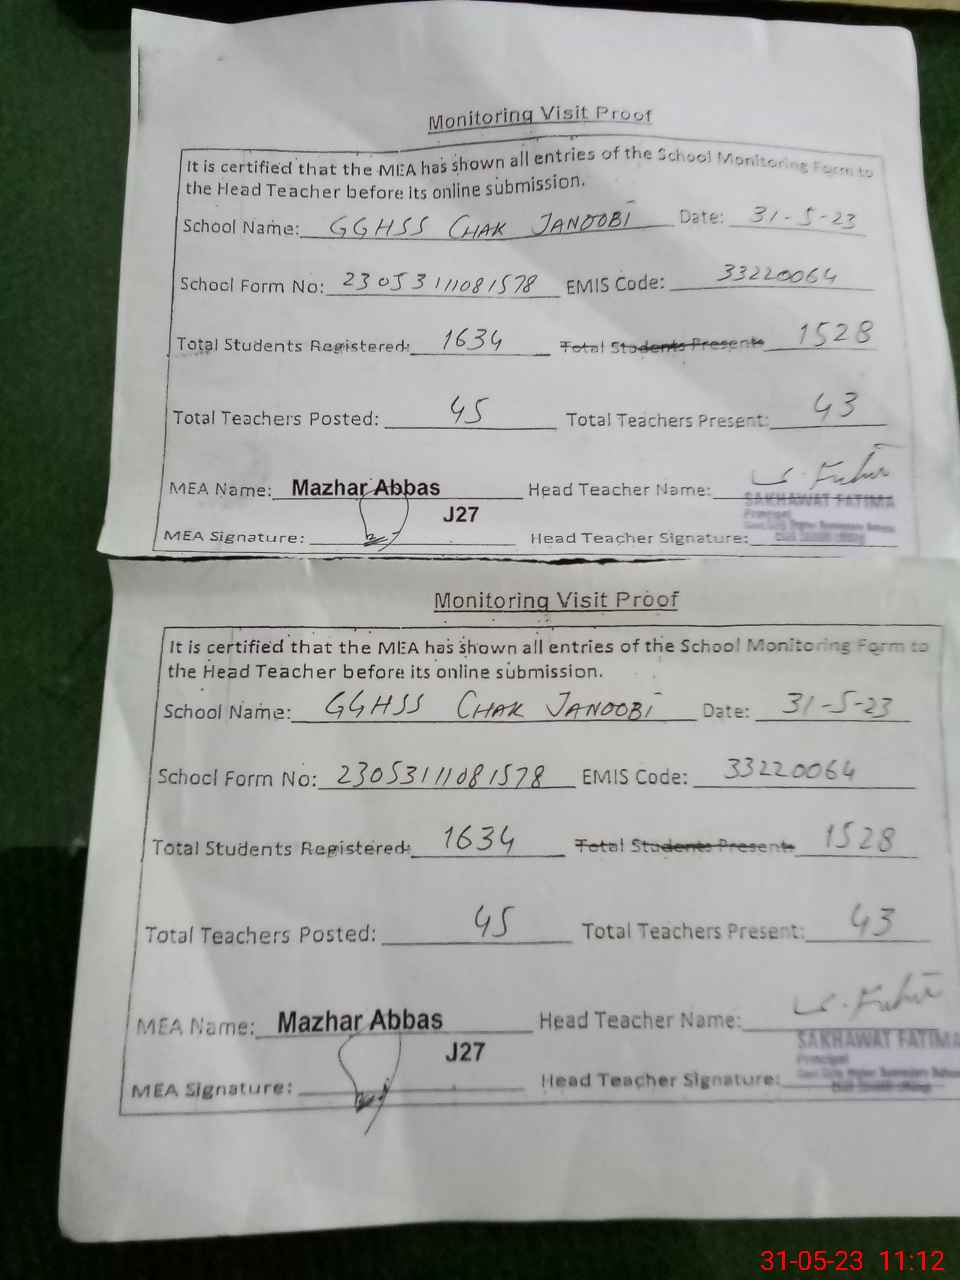 Monitoring Visit Proof
It is certified that the MEA has shown all entries of the School Monitoring Form to
the Head Teacher before its online submission.
School Name: GGHSS CHAK JANOOBI Date: 31-5-23
School Form No: 23053111081578 EMIS Code: 33220064
Total Students Registered: 1634 Total Students Present: 1528
Total Teachers Posted: 45 Total Teachers Present: 43
MEA Name: Mazhar Abbas Head Teacher Name: S. Fatima
J27 SAKHAWAT FATIMA
Principal
MEA Signature: Head Teacher Signature:
Monitoring Visit Proof
It is certified that the MEA has shown all entries of the School Monitoring Form to
the Head Teacher before its online submission.
School Name: GGHSS CHAK JANOOBI Date: 31-5-23
School Form No: 23053111081578 EMIS Code: 33220064
Total Students Registered: 1634 Total Students Present: 1528
Total Teachers Posted: 45 Total Teachers Present: 43
MEA Name: Mazhar Abbas Head Teacher Name: S. Fatima
J27 SAKHAWAT FATIMA
Principal
MEA Signature: Head Teacher Signature:
31-05-23 11:12